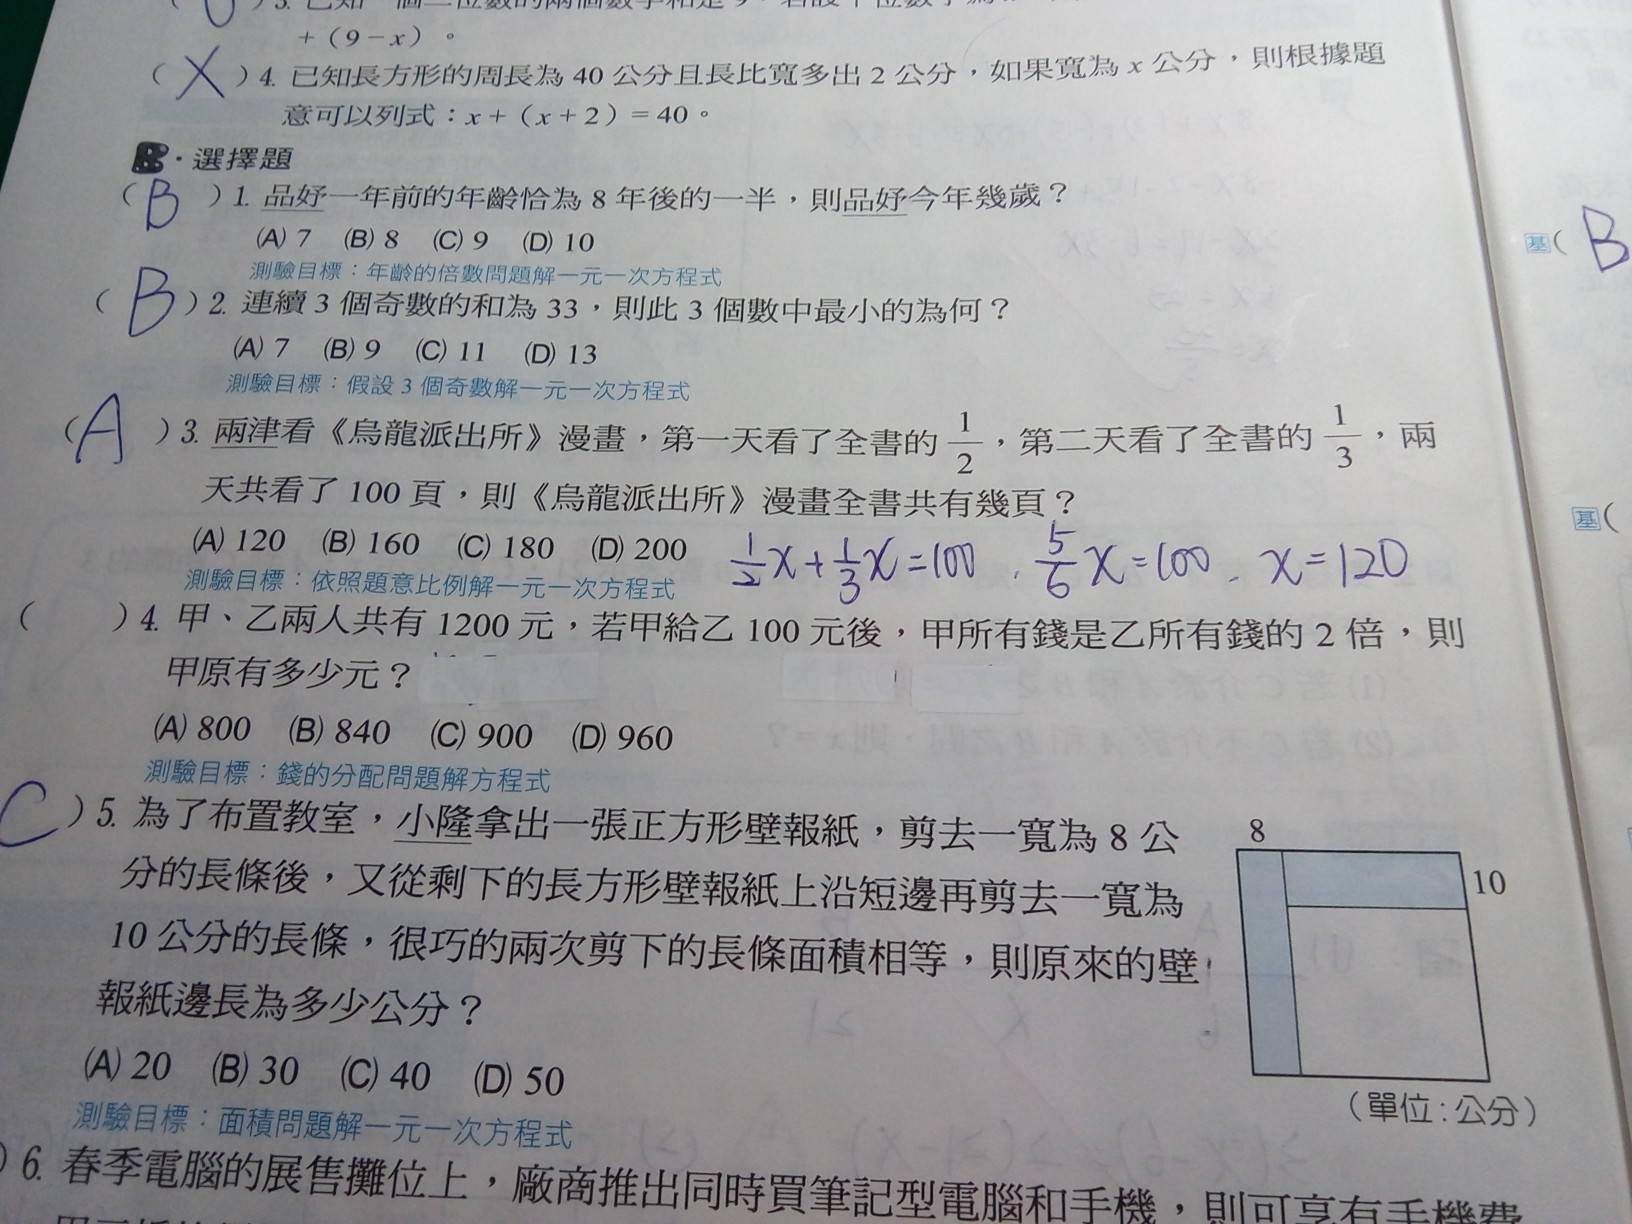 +(9-x)。
( X )4. 已知長方形的周長為 40 公分且長比寬多出 2 公分，如果寬為 x 公分，則根據題
意可以列式：x+(x+2)=40。
B．選擇題
( B )1. 品妤一年前的年齡恰為 8 年後的一半，則品妤今年幾歲？
(A) 7 (B) 8 (C) 9 (D) 10
測驗目標：年齡的倍數問題解一元一次方程式
( B )2. 連續 3 個奇數的和為 33，則此 3 個數中最小的為何？
(A) 7 (B) 9 (C) 11 (D) 13
測驗目標：假設 3 個奇數解一元一次方程式
( A )3. 兩津看《烏龍派出所》漫畫，第一天看了全書的 1/2，第二天看了全書的 1/3，兩
天共看了 100 頁，則《烏龍派出所》漫畫全書共有幾頁？
(A) 120 (B) 160 (C) 180 (D) 200 1/2x+1/3x=100. 5/6x=100. x=120
測驗目標：依照題意比例解一元一次方程式
( )4. 甲、乙兩人共有 1200 元，若甲給乙 100 元後，甲所有錢是乙所有錢的 2 倍，則
甲原有多少元？
(A) 800 (B) 840 (C) 900 (D) 960
測驗目標：錢的分配問題解方程式
C )5. 為了布置教室，小隆拿出一張正方形壁報紙，剪去一寬為 8 公
分的長條後，又從剩下的長方形壁報紙上沿短邊再剪去一寬為
10 公分的長條，很巧的兩次剪下的長條面積相等，則原來的壁
報紙邊長為多少公分？
(A) 20 (B) 30 (C) 40 (D) 50
測驗目標：面積問題解一元一次方程式
8
10
（單位：公分）
)6. 春季電腦的展售攤位上，廠商推出同時買筆記型電腦和手機，則可享有手機費
基( B
基(